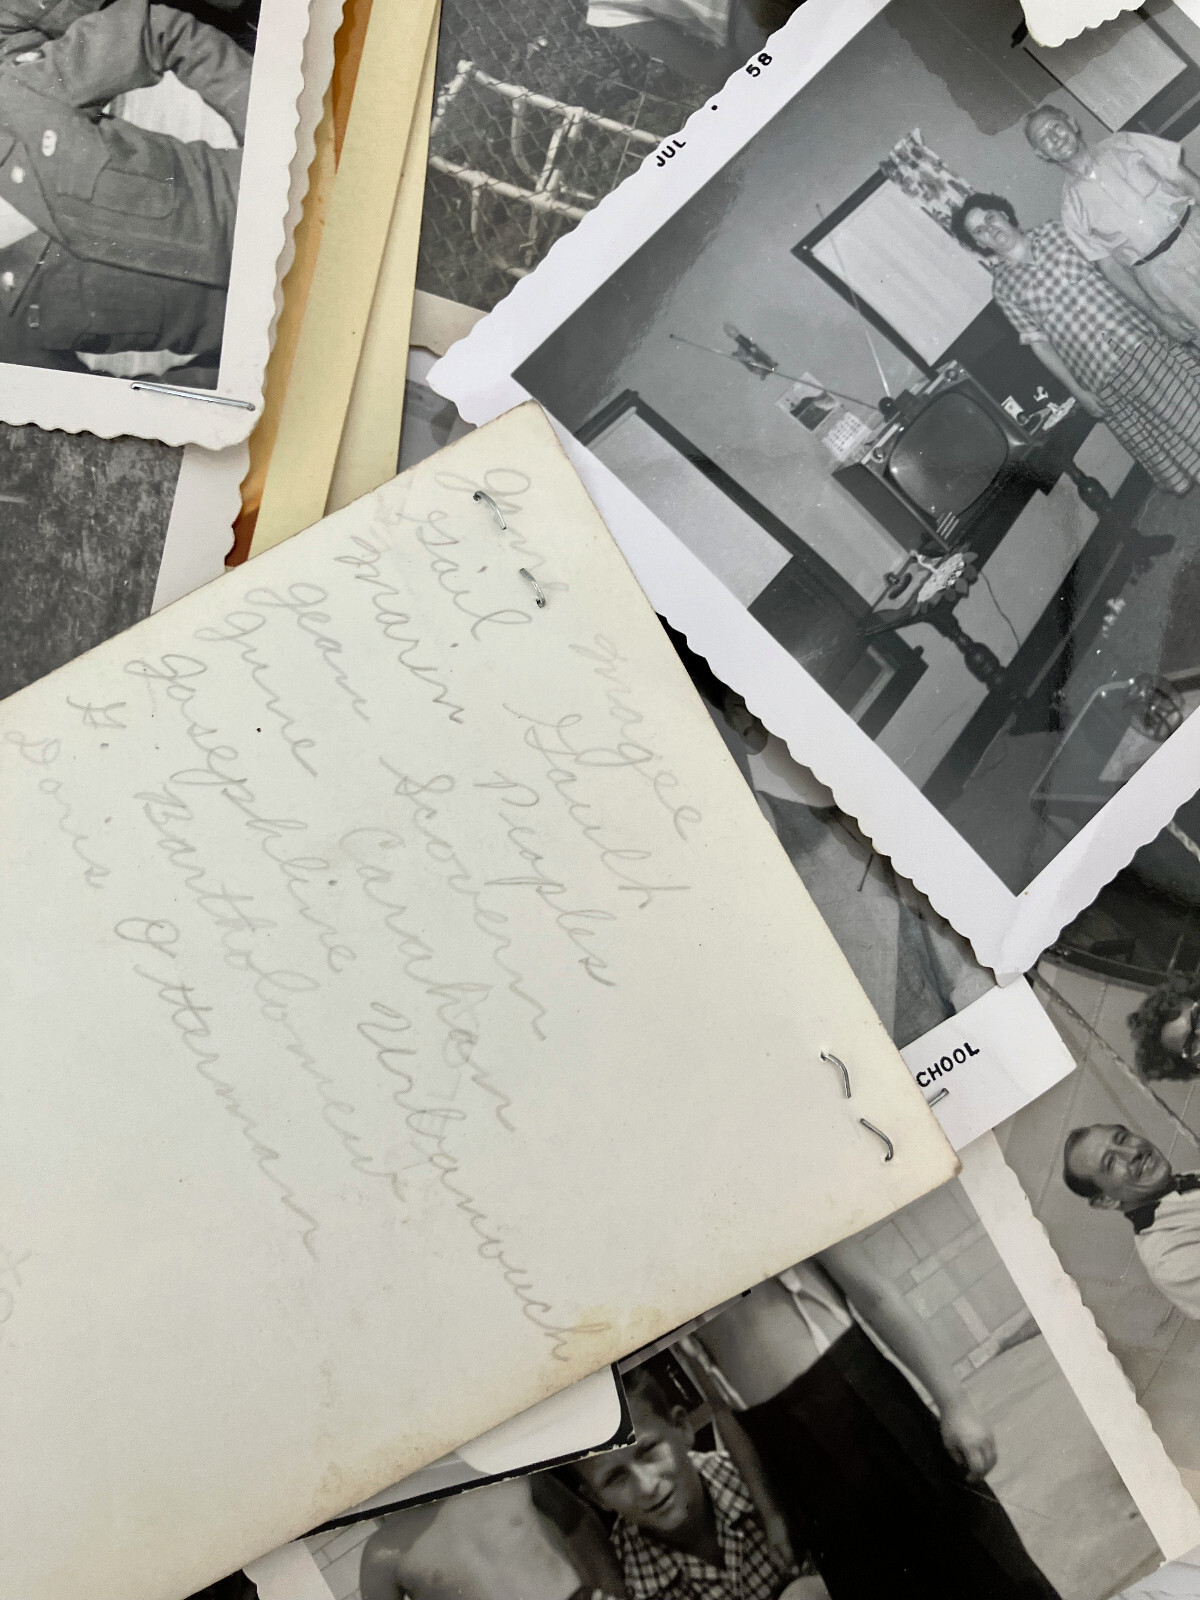 JUL • 58
Jane Magee
Gail Gault
Marin Peoples
Jean Scovern
June Carahan
Josephine Urbanouch
G. Bartholomew
Doris Otterman
CHOOL